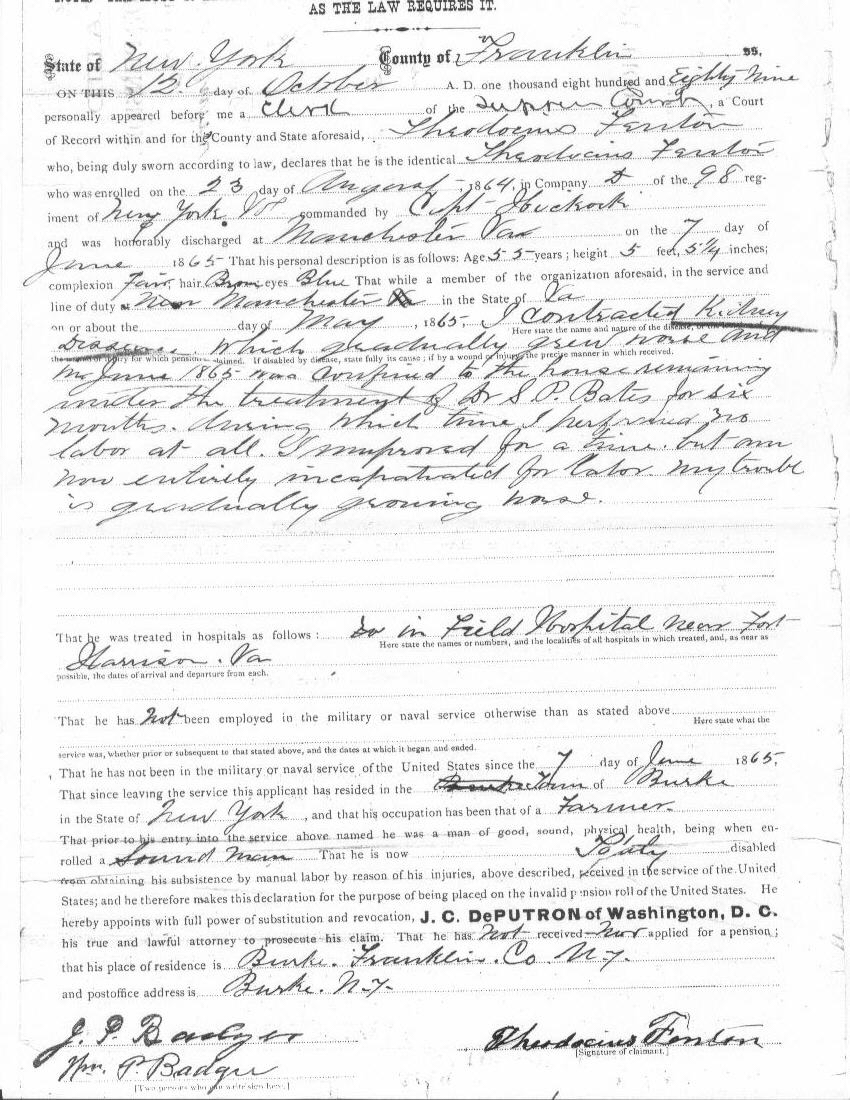 AS THE LAW REQUIRES IT.
State of New York County of Franklin ss,
ON THIS 12 day of October A. D. one thousand eight hundred and Eighty Nine
personally appeared before me a Clerk of the Supreme Court, a Court
of Record within and for the County and State aforesaid, Theodocius Fenton
who, being duly sworn according to law, declares that he is the identical Theodocius Fenton
who was enrolled on the 23 day of August, 1864, in Company D of the 98 reg-
iment of New York Vol commanded by Capt
and was honorably discharged at Manchester Va on the 7 day of
June 1865 That his personal description is as follows: Age 55 years; height 5 feet, 5¼ inches;
complexion Fair, hair Brown eyes Blue That while a member of the organization aforesaid, in the service and
line of duty at Near Manchester in the State of Va
on or about the day of May, 1865, I contracted Kidney
Here state the name and nature of the disease, or the
Disease which gradually grew worse and
the injury for which pension is claimed. If disabled by disease, state fully its cause; if by a wound or injury, the precise manner in which received.
in June 1865 was confined to the house remaining
under the treatment of Dr S. P. Bates for six
months. during which time I performed no
labor at all. I improved for a time. but am
now entirely incapatiated for labor my trouble
is gradually growing worse.
That he was treated in hospitals as follows: in Field Hospital near Fort
Here state the names or numbers, and the localities of all hospitals in which treated, and, as near as
Harrison. Va
possible, the dates of arrival and departure from each.
That he has Not been employed in the military or naval service otherwise than as stated above
Here state what the
service was, whether prior or subsequent to that stated above, and the dates at which it began and ended.
That he has not been in the military or naval service of the United States since the 7 day of June 1865,
That since leaving the service this applicant has resided in the Town of Burke
in the State of New York, and that his occupation has been that of a Farmer.
That prior to his entry into the service above named he was a man of good, sound, physical health, being when en-
rolled a Sound Man That he is now disabled
from obtaining his subsistence by manual labor by reason of his injuries, above described, received in the service of the United
States; and he therefore makes this declaration for the purpose of being placed on the invalid pension roll of the United States. He
hereby appoints with full power of substitution and revocation, J. C. DePUTRON of Washington, D. C.
his true and lawful attorney to prosecute his claim. That he has Not received Nor applied for a pension;
that his place of residence is Burke. Franklin. Co N.Y.
and postoffice address is Burke. N.Y.
J. P. Badger
Wm. P. Badger
Theodocius Fenton
[Signature of claimant.]
[Two persons who can write sign here.]